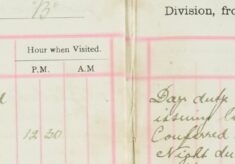 "B"
Division, fro
Hour when Visited.
P.M. A.M
d
12 20
Day duty
issuing
Conferred
Night du